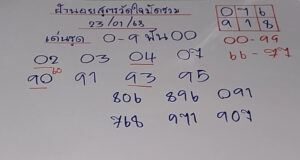 ฝ่านอยสูตรวัดใจบัดรวม
23/01/63
0 7 6
9 1 8
เด่นชุด 0-9 ฟัน 00
00-99
66-77
02 03 04 07
60
90 91 93 95
806 896 091
768 971 907